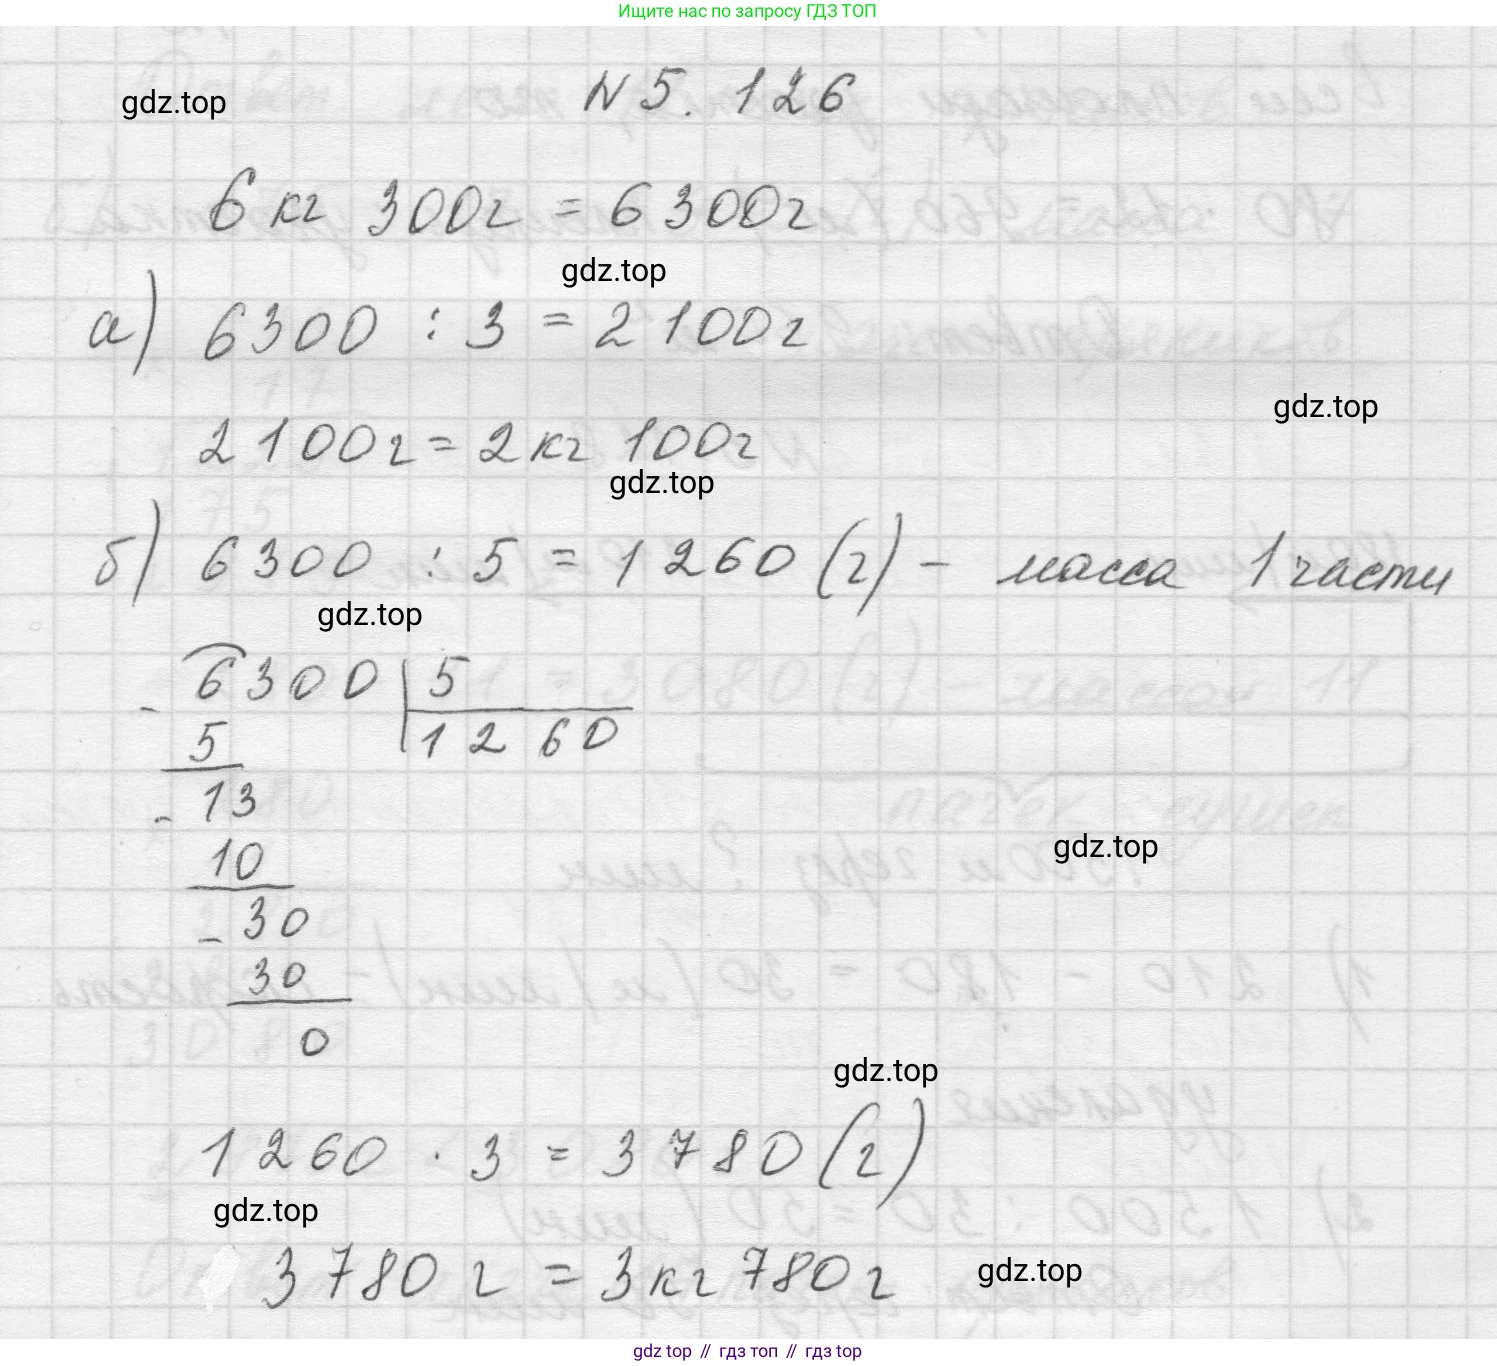 Ищите нас по запросу ГДЗ ТОП
N 5. 126
gdz.top
6 кг 300г = 6300г
gdz.top
а) 6300 : 3 = 2100г
gdz.top
2100г = 2кг 100г
gdz.top
б) 6300 : 5 = 1260 (г) - масса 1 части
gdz.top
- 6300 | 5
5 1260
- 13
10
gdz.top
- 30
30
0
gdz.top
1260 · 3 = 3780 (г)
gdz.top
3780 г = 3кг 780г
gdz.top
gdz top // гдз топ // гдз top